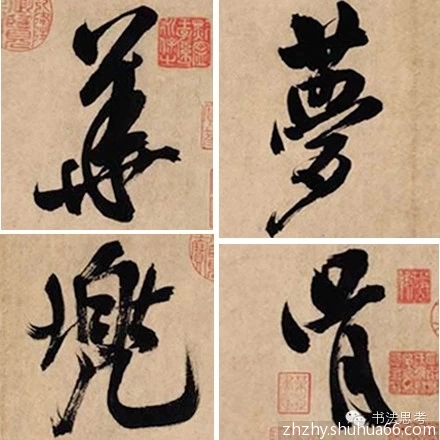 華 夢
兜 胥
书法思考
zhzhy.shuhua66.com